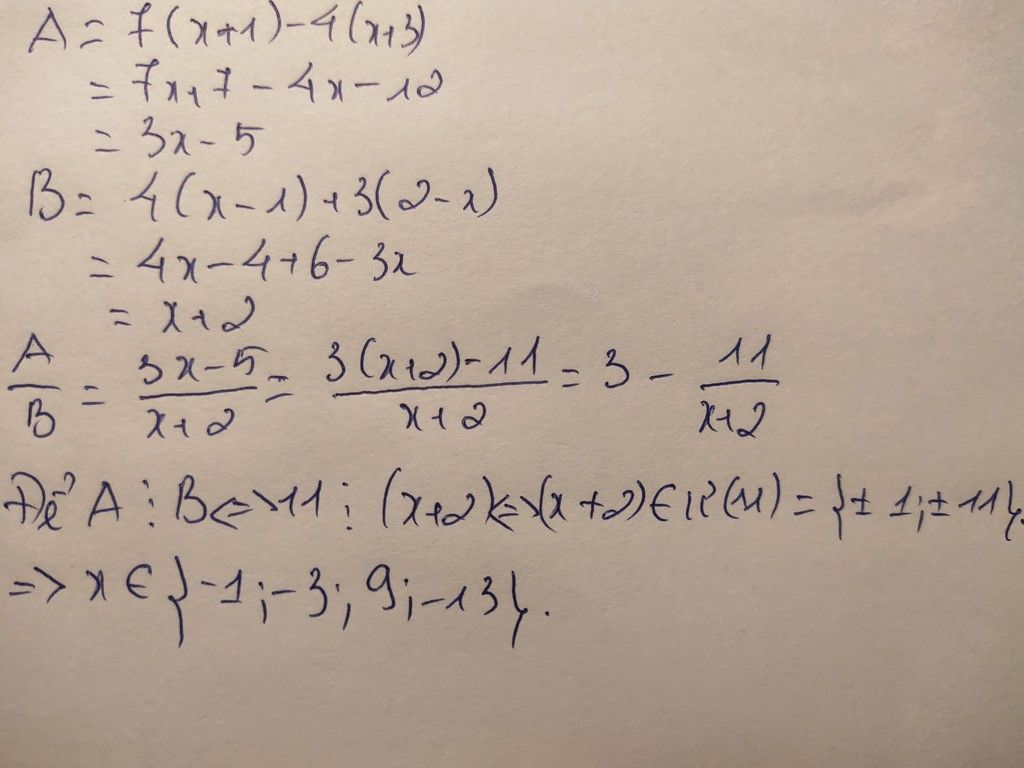 A = 7(x+1) - 4(x+3)
= 7x + 7 - 4x - 12
= 3x - 5
B = 4(x - 1) + 3(2 - x)
= 4x - 4 + 6 - 3x
= x + 2
A/B = (3x - 5)/(x + 2) = (3(x+2) - 11)/(x + 2) = 3 - 11/(x+2)
Để A ⋮ B <=> 11 ⋮ (x+2) <=> (x + 2) ∈ Ư(11) = {± 1; ± 11}.
=> x ∈ {-1; -3; 9; -13}.